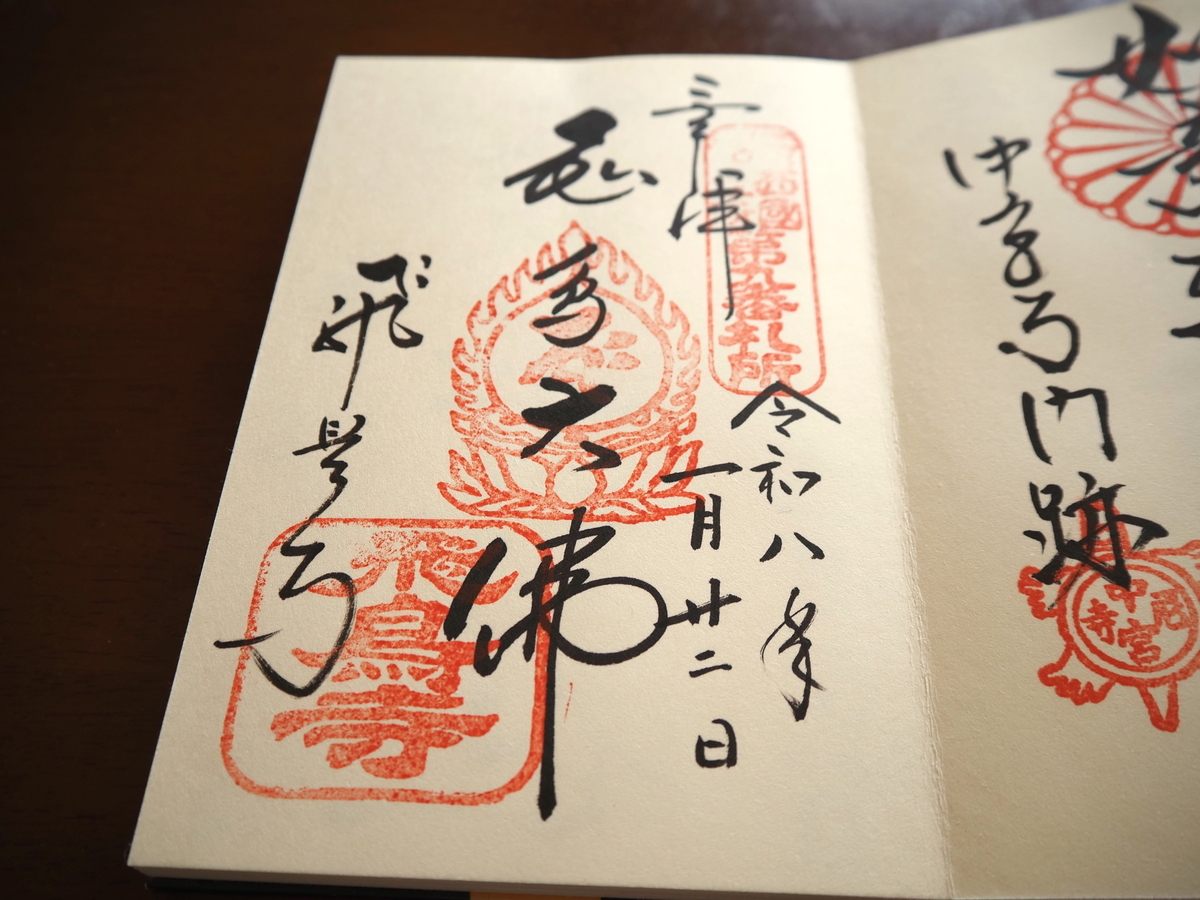 中宮寺門跡
奉拝
西国第九番札所
令和八年
一月廿二日
飛鳥大佛
飛鳥寺
飛鳥寺